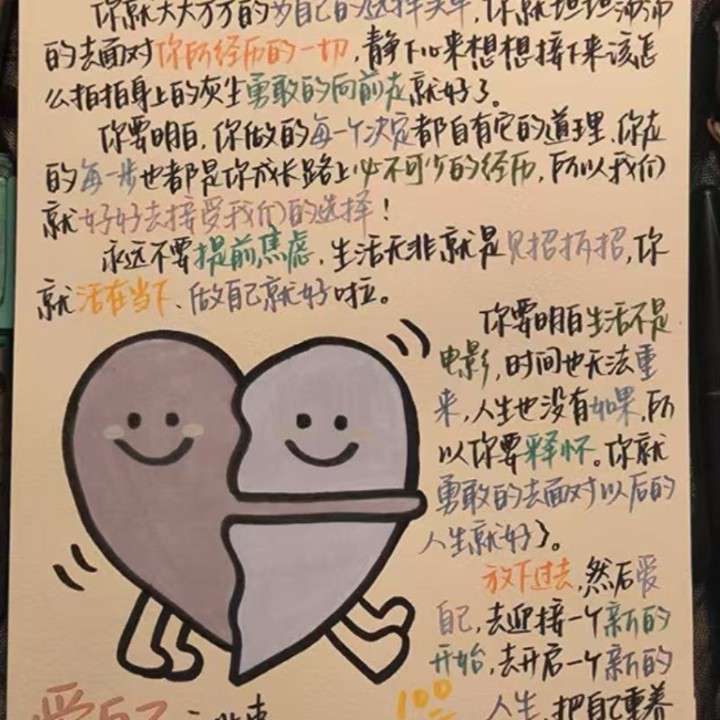 你就大大方方的为自己的选择买单，你就坦坦荡荡
的去面对你所经历的一切，静下心来想想接下来该怎
么拍拍身上的灰尘勇敢的向前走就好了。
你要明白，你做的每一个决定都自有它的道理，你走
的每一步也都是你成长路上必不可少的经历，所以我们
就好好去接受我们的选择！
永远不要提前焦虑，生活无非就是见招拆招，你
就活在当下、做自己就好啦。
你要明白生活不是
电影，时间也无法重
来，人生也没有如果，所
以你要释怀。你就
勇敢的去面对以后的
人生就好了。
放下过去，然后爱
自己，去迎接一个新的
开始，去开启一个新的
人生，把自己重养
爱自己
100